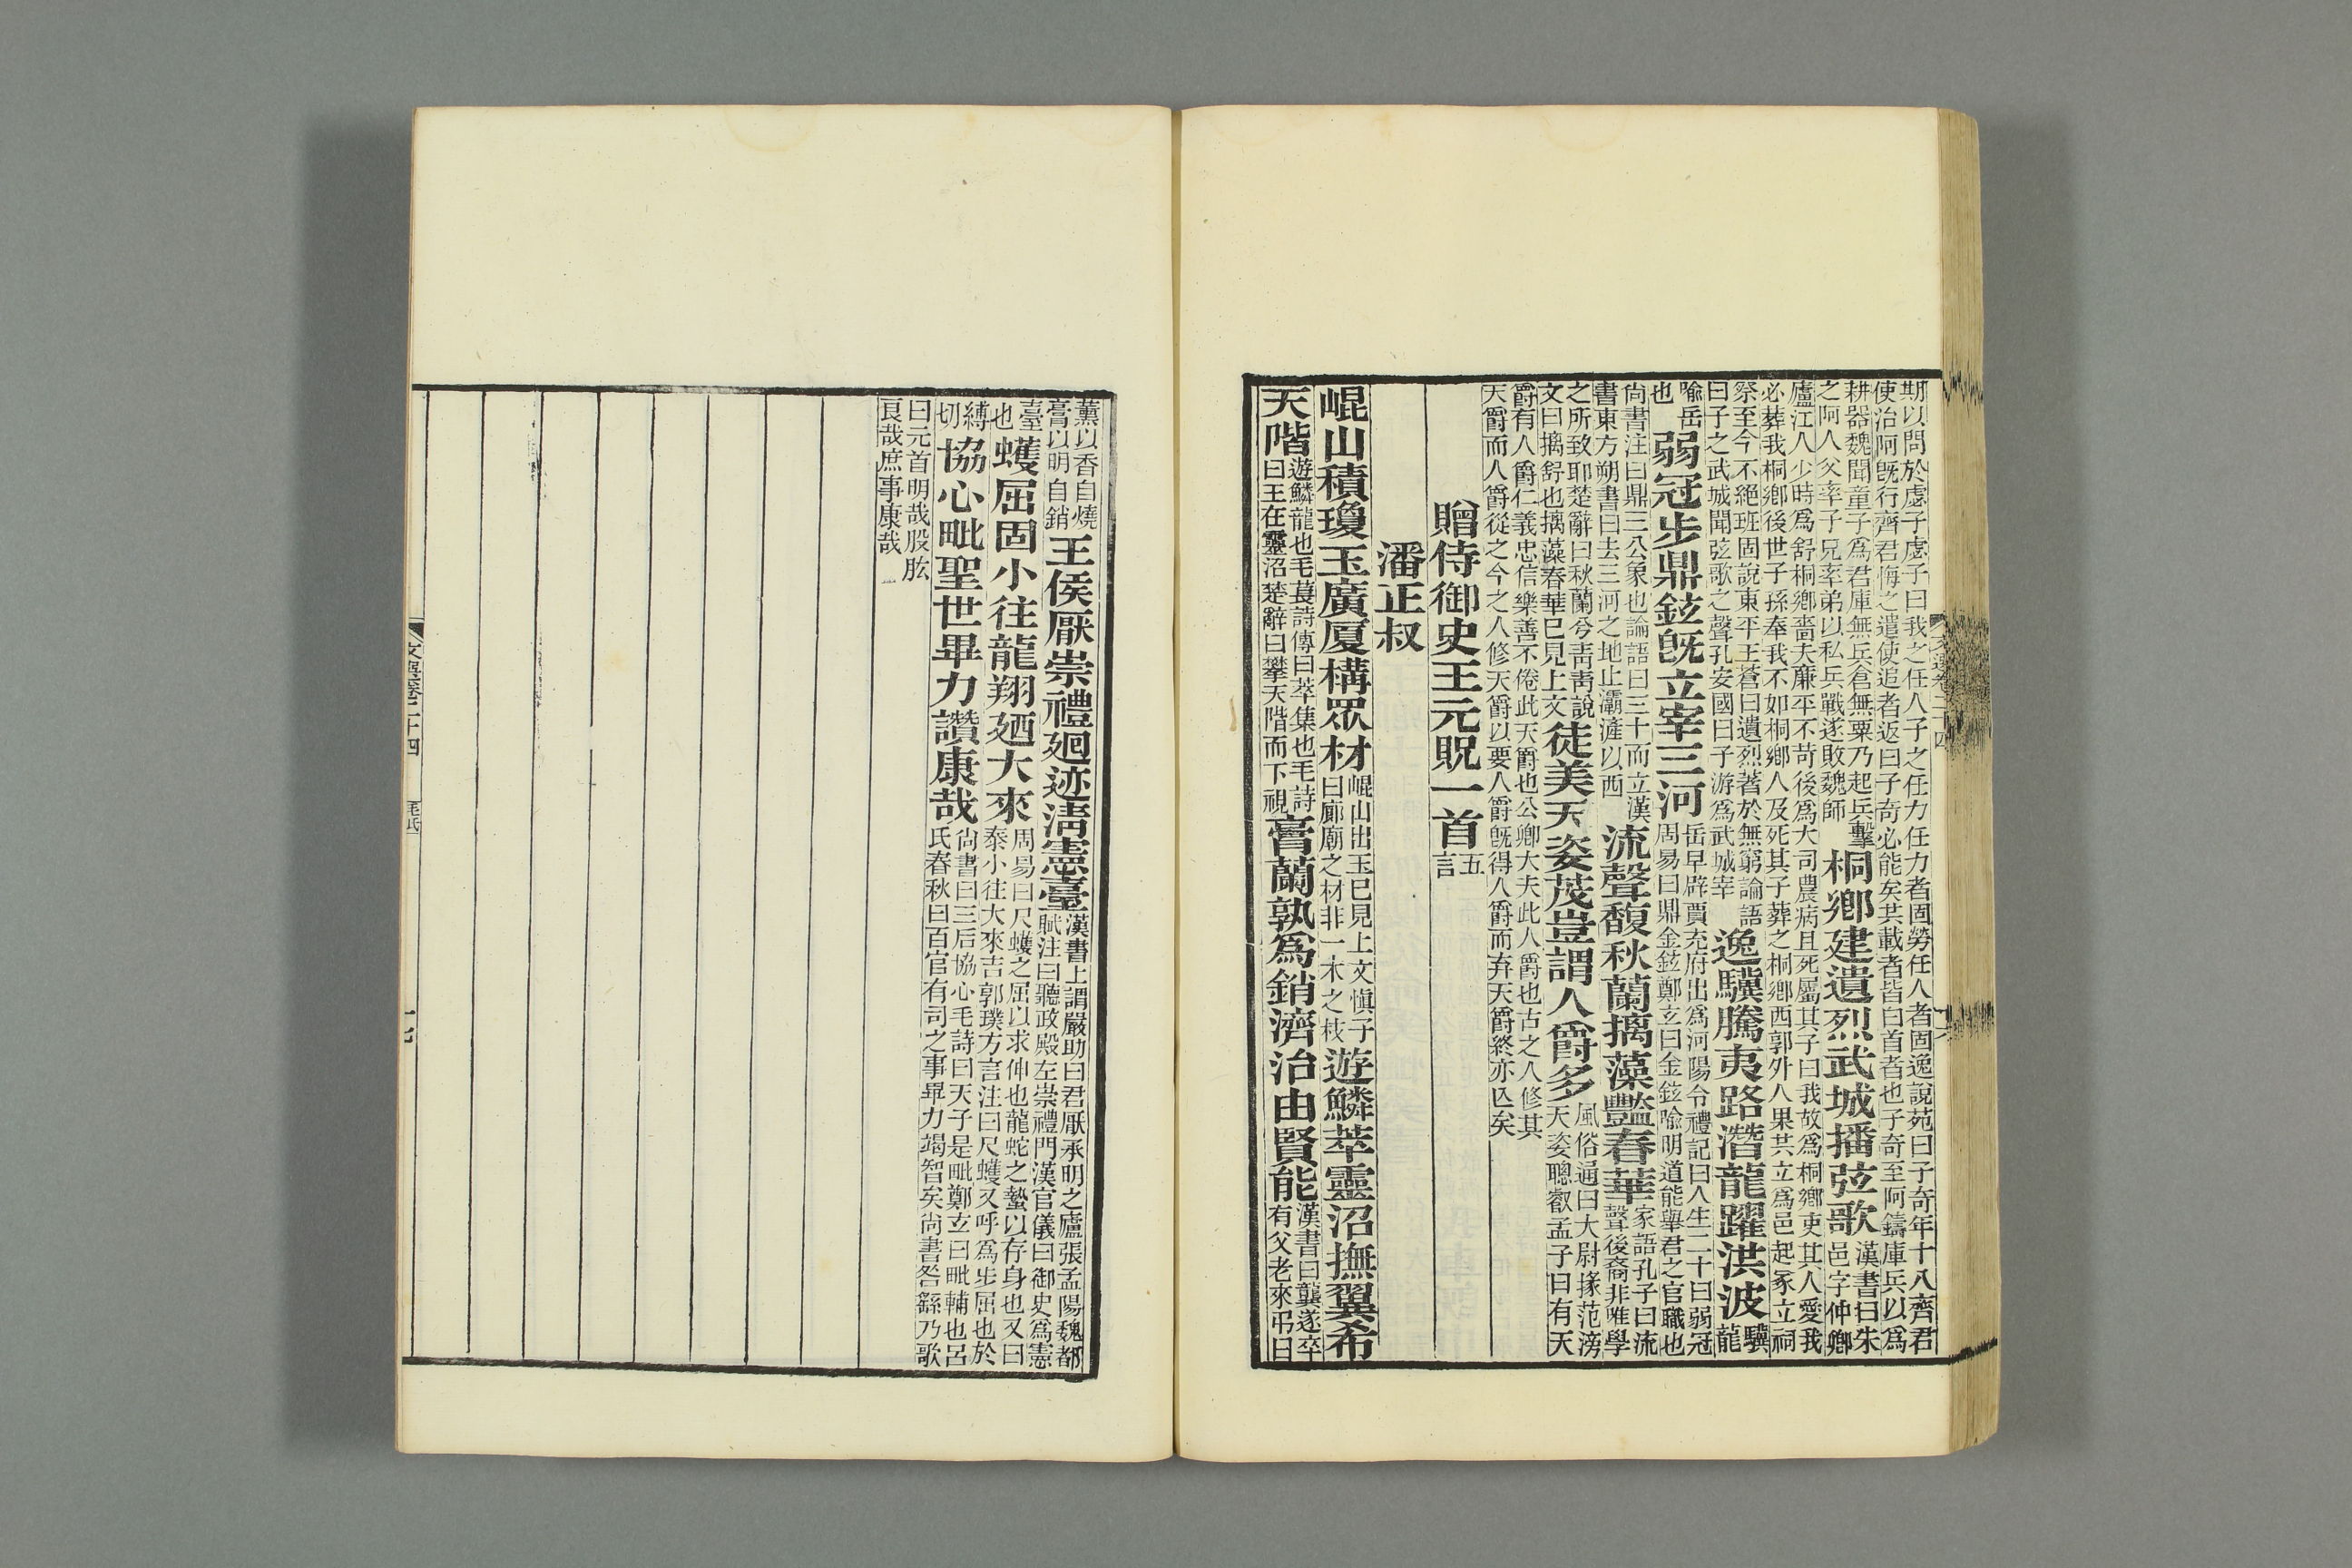 期以問於虙子虙子曰我之任人子之任力任力者固勞任人者固逸說苑曰子奇年十八齊君
使治阿旣行齊君悔之遣使追者返曰子奇必能矣共載者皆白首者也子奇至阿鑄庫兵以爲
耕器魏聞童子爲君庫無兵倉無粟乃起兵擊
之阿人父率子兄率弟以私兵戰遂敗魏師
桐鄉建遺烈武城播弦歌
漢書曰朱
邑字仲卿
廬江人少時爲舒桐鄉嗇夫廉平不苛後爲大司農病且死屬其子曰我故爲桐鄉吏其人愛我
必葬我桐鄉後世子孫奉我不如桐鄉人及死其子葬之桐鄉西郭外人果共立爲邑起冢立祠
祭至今不絕班固說東平王蒼曰遺烈著於無窮論語
曰子之武城聞弦歌之聲孔安國曰子游爲武城宰
逸驥騰夷路潛龍躍洪波
驥
龍
喻岳
也
弱冠步鼎鉉旣立宰三河
岳早辟賈充府出爲河陽令禮記曰人生二十曰弱冠
周易曰鼎金鉉鄭玄曰金鉉喻明道能舉君之官職也
尙書注曰鼎三公象也論語曰三十而立漢
書東方朔書曰去三河之地止灞滻以西
流聲馥秋蘭摛藻豔春華
家語孔子曰流
聲後裔非唯學
之所致耶楚辭曰秋蘭兮靑靑說
文曰摛舒也摛藻春華已見上文
徒美天姿茂豈謂人爵多
風俗通曰大尉掾范滂
天姿聰叡孟子曰有天
爵有人爵仁義忠信樂善不倦此天爵也公卿大夫此人爵也古之人修其
天爵而人爵從之今之人修天爵以要人爵旣得人爵而弃天爵終亦亾矣
贈侍御史王元貺一首
五
言
潘正叔
崐山積瓊玉廣厦構眾材
崐山出玉已見上文愼子
曰廊廟之材非一木之枝
遊鱗萃靈沼撫翼希
天階
遊鱗龍也毛萇詩傳曰萃集也毛詩
曰王在靈沼楚辭曰攀天階而下視
膏蘭孰爲銷濟治由賢能
漢書曰龔遂卒
有父老來弔曰
薰以香自燒
膏以明自銷
王侯厭崇禮廻迹淸憲臺
漢書上謂嚴助曰君厭承明之廬張孟陽魏都
賦注曰聽政殿左崇禮門漢官儀曰御史爲憲
臺
也
蠖屈固小往龍翔廼大來
周易曰尺蠖之屈以求伸也龍蛇之蟄以存身也又曰
泰小往大來吉郭璞方言注曰尺蠖又呼爲步屈也於
縛
切
協心毗聖世畢力讚康哉
尙書曰三后協心毛詩曰天子是毗鄭玄曰毗輔也呂
氏春秋曰百官有司之事畢力竭智矣尙書咎繇乃歌
曰元首明哉股肱
良哉庶事康哉
文選卷二十四
毛氏
十七